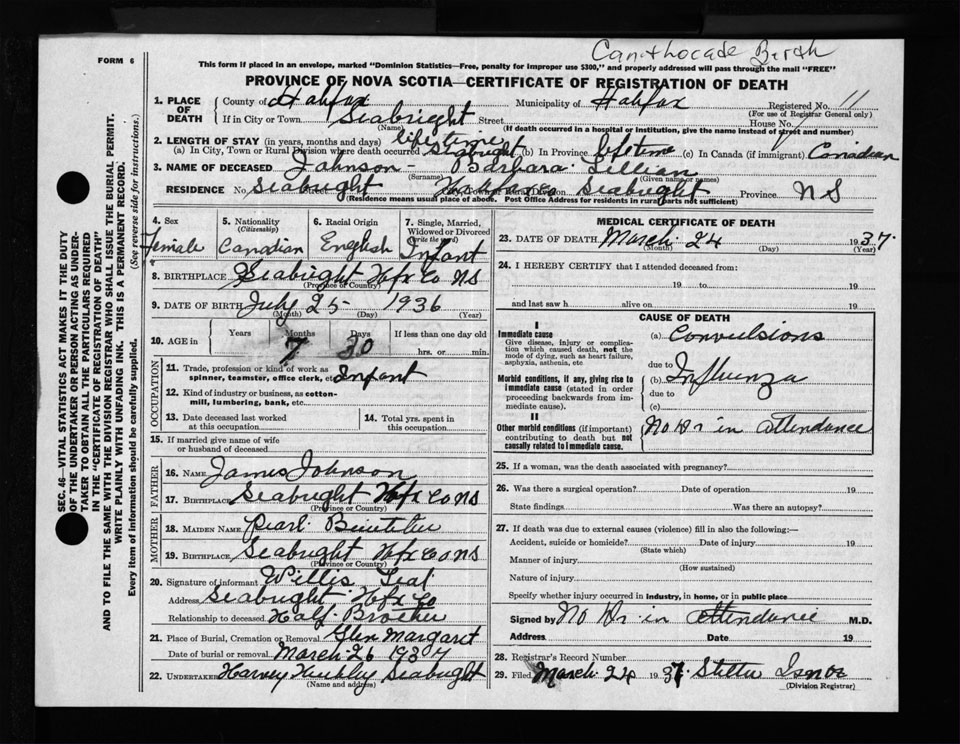 FORM 6
Birth
This form if placed in an envelope, marked "Dominion Statistics—Free, penalty for improper use $300," and properly addressed will pass through the mail "FREE"
PROVINCE OF NOVA SCOTIA—CERTIFICATE OF REGISTRATION OF DEATH
1. PLACE OF DEATH
County of Halifax Municipality of Halifax Registered No. 11
(For use of Registrar General only)
If in City or Town Seabright Street House No.
(Name) (If death occurred in a hospital or institution, give the name instead of street and number)
2. LENGTH OF STAY (in years, months and days) lifetime
(a) In City, Town or Rural Division where death occurred Seabright (b) In Province lifetime (c) In Canada (if immigrant) Canadian
3. NAME OF DECEASED Johnson Barbara Lillian
(Surname) (Given name or names)
RESIDENCE No. Seabright Seabright Province NS
(Residence means usual place of abode. Post Office Address for residents in rural parts not sufficient)
4. Sex Female
5. Nationality (Citizenship) Canadian
6. Racial Origin English
7. Single, Married, Widowed or Divorced (write the word) Infant
8. BIRTHPLACE Seabright Hfx Co NS
(Province or Country)
9. DATE OF BIRTH July 25 1936
(Month) (Day) (Year)
10. AGE in Years Months Days If less than one day old
7 30 hrs. or min.
OCCUPATION
11. Trade, profession or kind of work as spinner, teamster, office clerk, etc. Infant
12. Kind of industry or business, as cotton-mill, lumbering, bank, etc.
13. Date deceased last worked at this occupation
14. Total yrs. spent in this occupation.
15. If married give name of wife or husband of deceased
FATHER
16. NAME James Johnson
17. BIRTHPLACE Seabright Hfx Co NS
(Province or Country)
MOTHER
18. MAIDEN NAME Pearl
19. BIRTHPLACE Seabright Hfx Co NS
(Province or Country)
20. Signature of informant Willis
Address Seabright Hfx Co
Relationship to deceased Half Brother
21. Place of Burial, Cremation or Removal Glen Margaret
Date of burial or removal March 26 1937
22. UNDERTAKER Harvey Hubley Seabright
(Name and address)
MEDICAL CERTIFICATE OF DEATH
23. DATE OF DEATH March 24 1937
(Month) (Day) (Year)
24. I HEREBY CERTIFY that I attended deceased from:
19 to 19
and last saw h alive on 19
CAUSE OF DEATH
I
Immediate cause
Give disease, injury or complication which caused death, not the mode of dying, such as heart failure, asphyxia, asthenia, etc.
(a) Convulsions
due to
Morbid conditions, if any, giving rise to immediate cause (stated in order proceeding backwards from immediate cause).
(b) Influenza
due to
(c)
II
Other morbid conditions (if important) contributing to death but not causally related to immediate cause.
No Dr in attendance
25. If a woman, was the death associated with pregnancy?
26. Was there a surgical operation? Date of operation 19
State findings Was there an autopsy?
27. If death was due to external causes (violence) fill in also the following:—
Accident, suicide or homicide? Date of injury 19
(State which)
Manner of injury
(How sustained)
Nature of injury
Specify whether injury occurred in industry, in home, or in public place
Signed by No Dr in attendance M.D.
Address Date 19
28. Registrar's Record Number
29. Filed March 24 1937
(Division Registrar)
SEC. 46—VITAL STATISTICS ACT MAKES IT THE DUTY
OF THE UNDERTAKER OR PERSON ACTING AS UNDER-
TAKER TO OBTAIN ALL THE PARTICULARS REQUIRED
IN THE "CERTIFICATE OF REGISTRATION OF DEATH"
AND TO FILE THE SAME WITH THE DIVISION REGISTRAR WHO SHALL ISSUE THE BURIAL PERMIT.
WRITE PLAINLY WITH UNFADING INK. THIS IS A PERMANENT RECORD.
Every item of information should be carefully supplied. (See reverse side for instructions.)